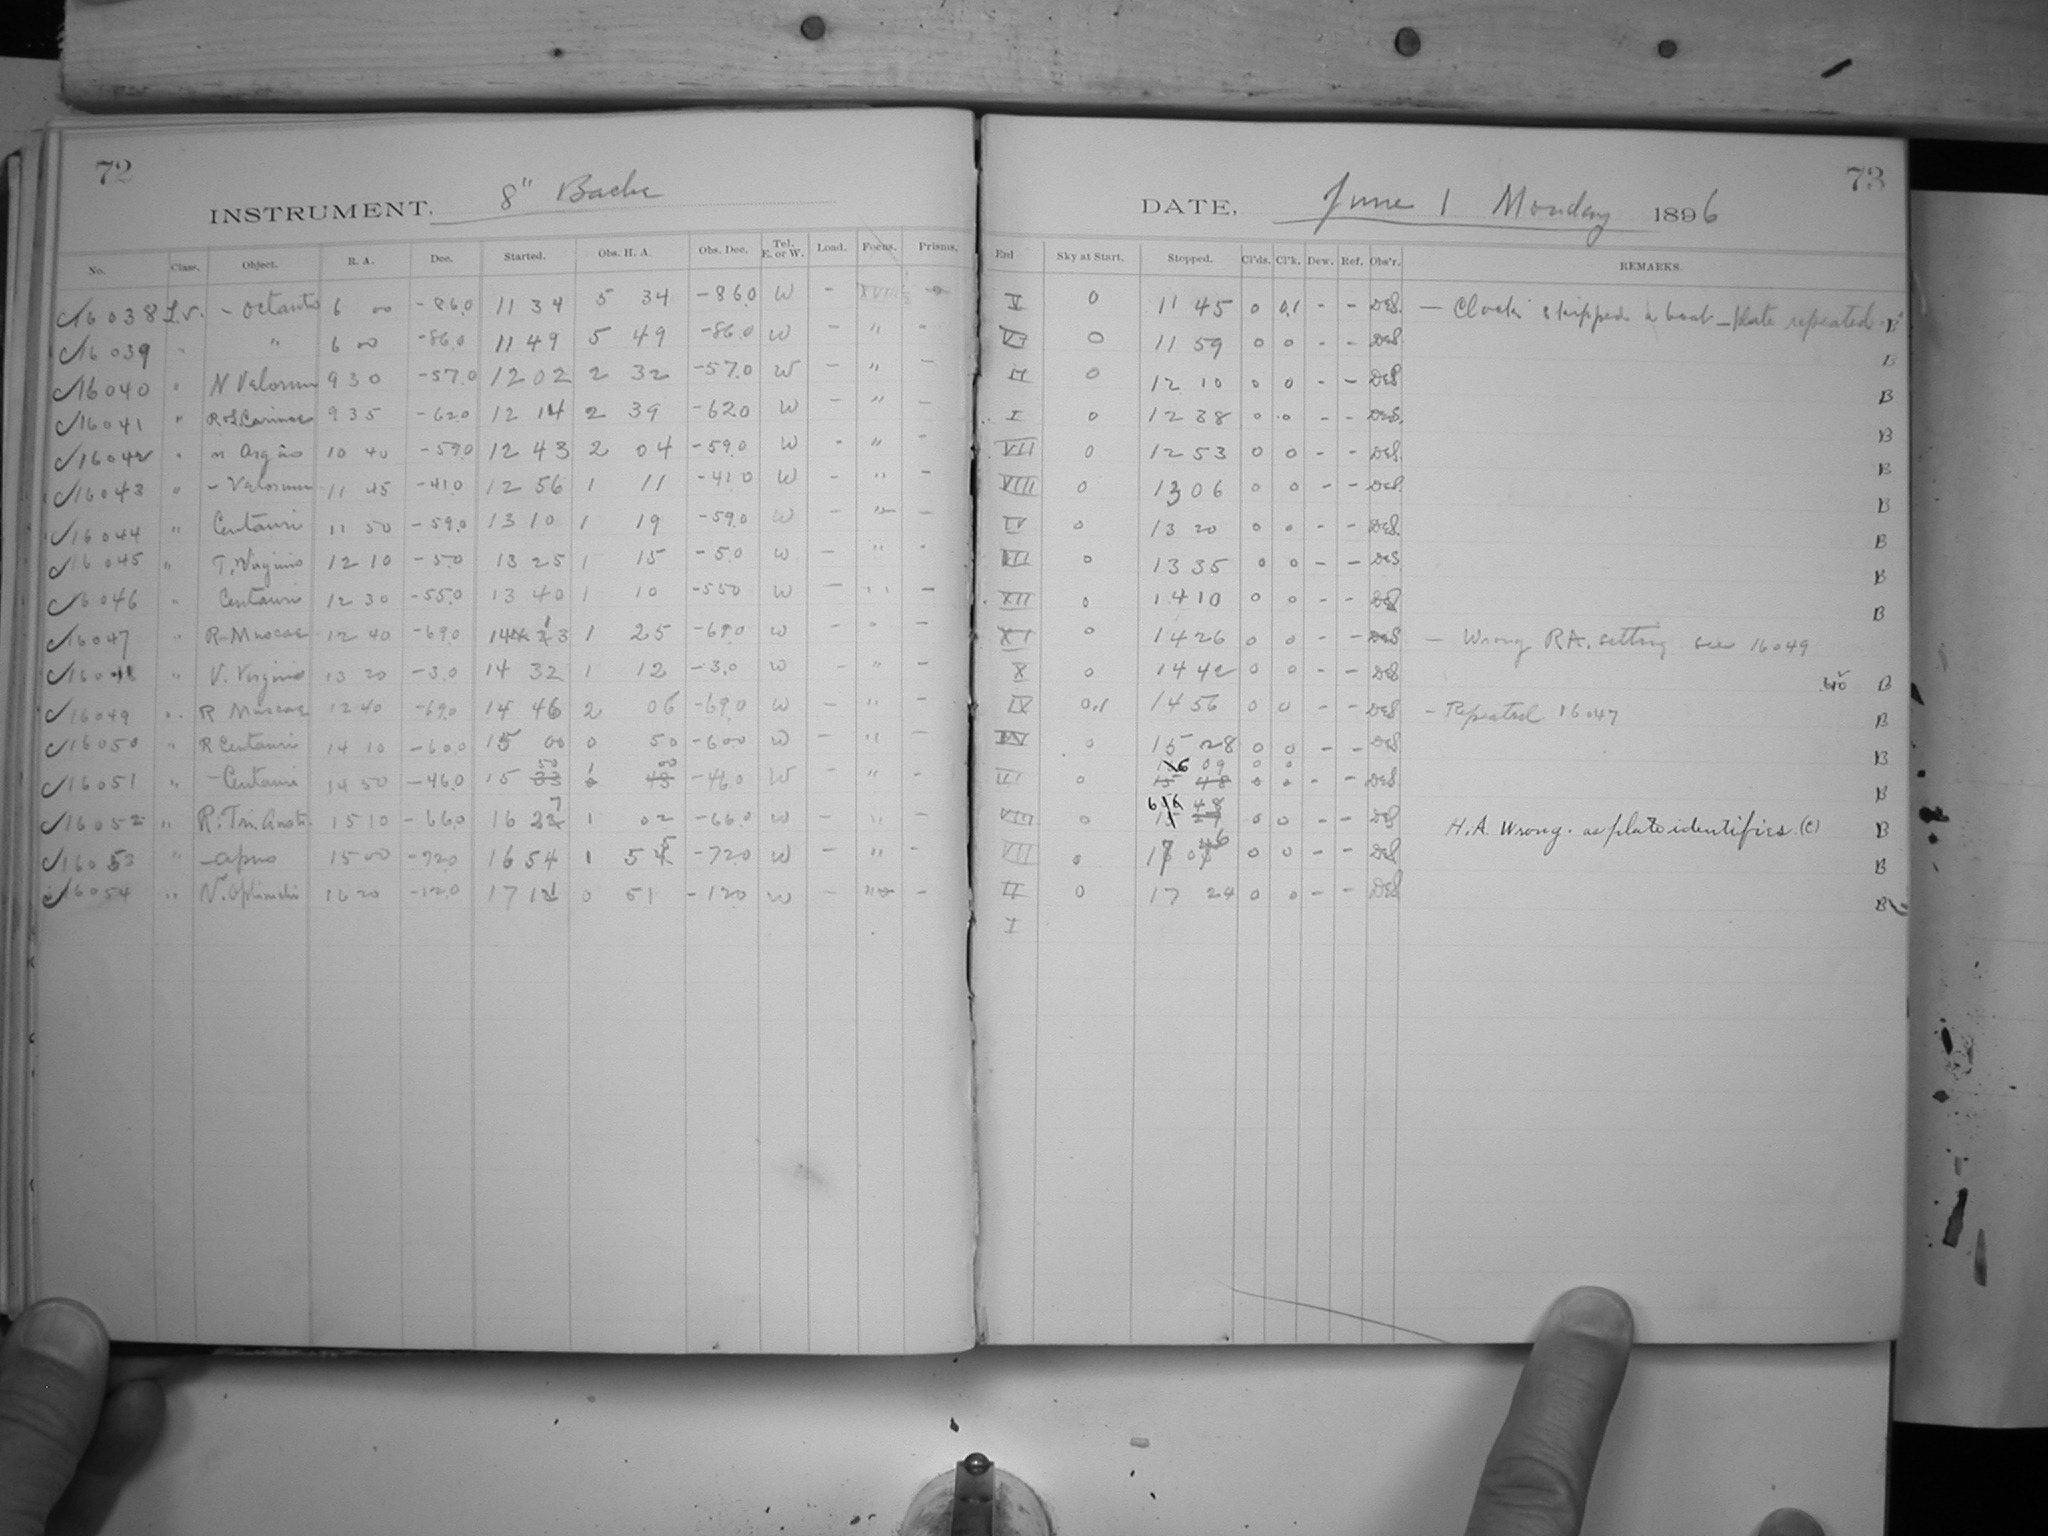 72
INSTRUMENT. 8" Bache
No. Class. Object. R. A. Dec. Started. Obs. H. A. Obs. Dec. Tel. E. or W. Load. Focus. Prisms.
16038 L.v. - Octantis 6 00 -86.0 11 34 5 34 -86.0 W - XVIII -
16039 " " 6 00 -86.0 11 49 5 49 -86.0 W - " -
16040 " N Velorum 9 30 -57.0 12 02 2 32 -57.0 W - " -
16041 " R & L Carinae 9 35 -62.0 12 14 2 39 -62.0 W - " -
16042 " η Argûs 10 40 -59.0 12 43 2 04 -59.0 W - " -
16043 " - Velorum 11 45 -41.0 12 56 1 11 -41.0 W - " -
16044 " Centauri 11 50 -59.0 13 10 1 19 -59.0 W - " -
16045 " T. Virginis 12 10 -5.0 13 25 1 15 -5.0 W - " -
16046 " Centauri 12 30 -55.0 13 40 1 10 -55.0 W - " -
16047 " R Muscae 12 40 -69.0 14 13 1 25 -69.0 W - " -
16048 " V. Virginis 13 20 -3.0 14 32 1 12 -3.0 W - " -
16049 " R Muscae 12 40 -69.0 14 46 2 06 -69.0 W - " -
16050 " R Centauri 14 10 -60.0 15 00 0 50 -60.0 W - " -
16051 " - Centauri 14 50 -46.0 15 50 1 00 -46.0 W - " -
16052 " R. Tri. Aust. 15 10 -66.0 16 1 02 -66.0 W - " -
16053 " - Apus 15 00 -72.0 16 54 1 -72.0 W - " -
16054 " V. Ophiuchi 16 20 -12.0 17 0 51 -12.0 W - " -
73
DATE, June 1 Monday 1896
End Sky at Start. Stopped. Cl'ds. Cl'k. Dew. Ref. Obs'r. REMARKS.
V 0 11 45 0 0.1 - - DES. - Clock skipped a beat - plate repeated. B
VI 0 11 59 0 0 - - DES B
II 0 12 10 0 0 - - DES B
I 0 12 38 0 0 - - DES. B
VII 0 12 53 0 0 - - DES. B
VIII 0 13 06 0 0 - - DES. B
IV 0 13 20 0 0 - - DES. B
0 13 35 0 0 - - DES B
XII 0 14 10 0 0 - - DES B
XI 0 14 26 0 0 - - DES - Wrong R.A. setting see 16049
X 0 14 42 0 0 - - DES B
IX 0.1 14 56 0 0 - - DES - Repeated 16047 B
0 15 28 0 0 - - DES B
0 16 09 0 0 - - DES. B
VIII 0 16 48 0 0 - - DES H.A. Wrong. as plate identifies. (C) B
VII 0 17 06 0 0 - - DES B
II 0 17 24 0 0 - - DES B
I